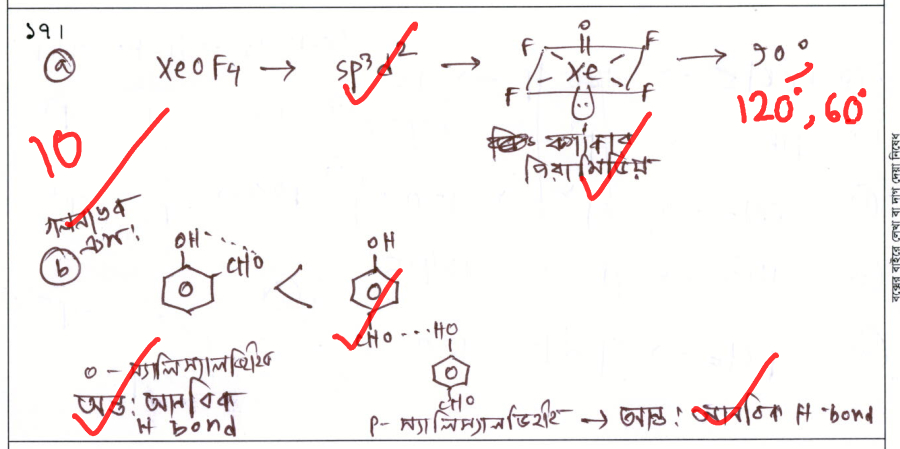 ১৭।
ⓐ XeOF4 → sp³d² → O F F Xe F F → 90°
120°, 60°
বর্গাকার
পিরামিডিয়
10
গলনাঙ্ক
ক্রম:
ⓑ OH CHO < OH
CHO ... HO
CHO
o - স্যালিস্যালডিহাইড
অন্ত: আনবিক
H bond
P- স্যালিস্যালডিহাইড → আন্ত: আনবিক H-bond
বক্সের বাইরে লেখা বা দাগ দেয়া নিষেধ